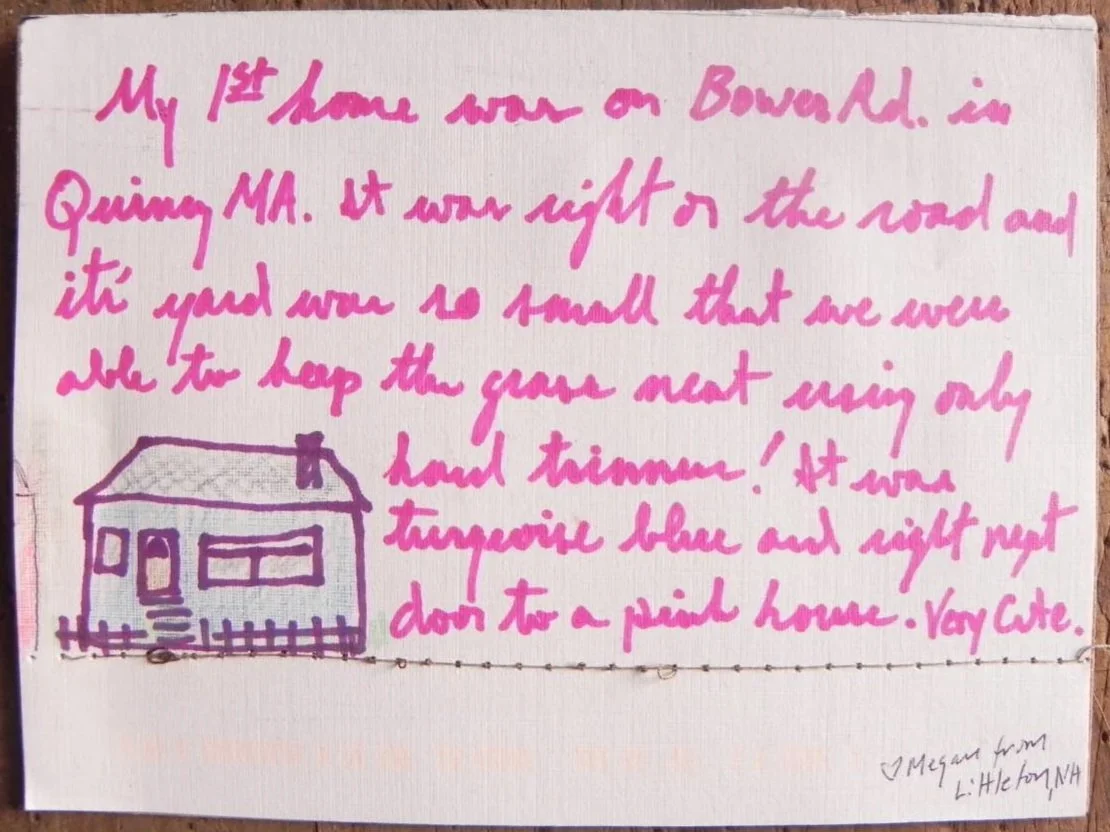 My 1st home was on Bower Rd. in
Quincy MA. It was right on the road and
it's yard was so small that we were
able to keep the grass neat using only
hand trimmers! It was
turquoise blue and right next
door to a pink house. Very Cute.
♡ Megan from
Littleton, NH